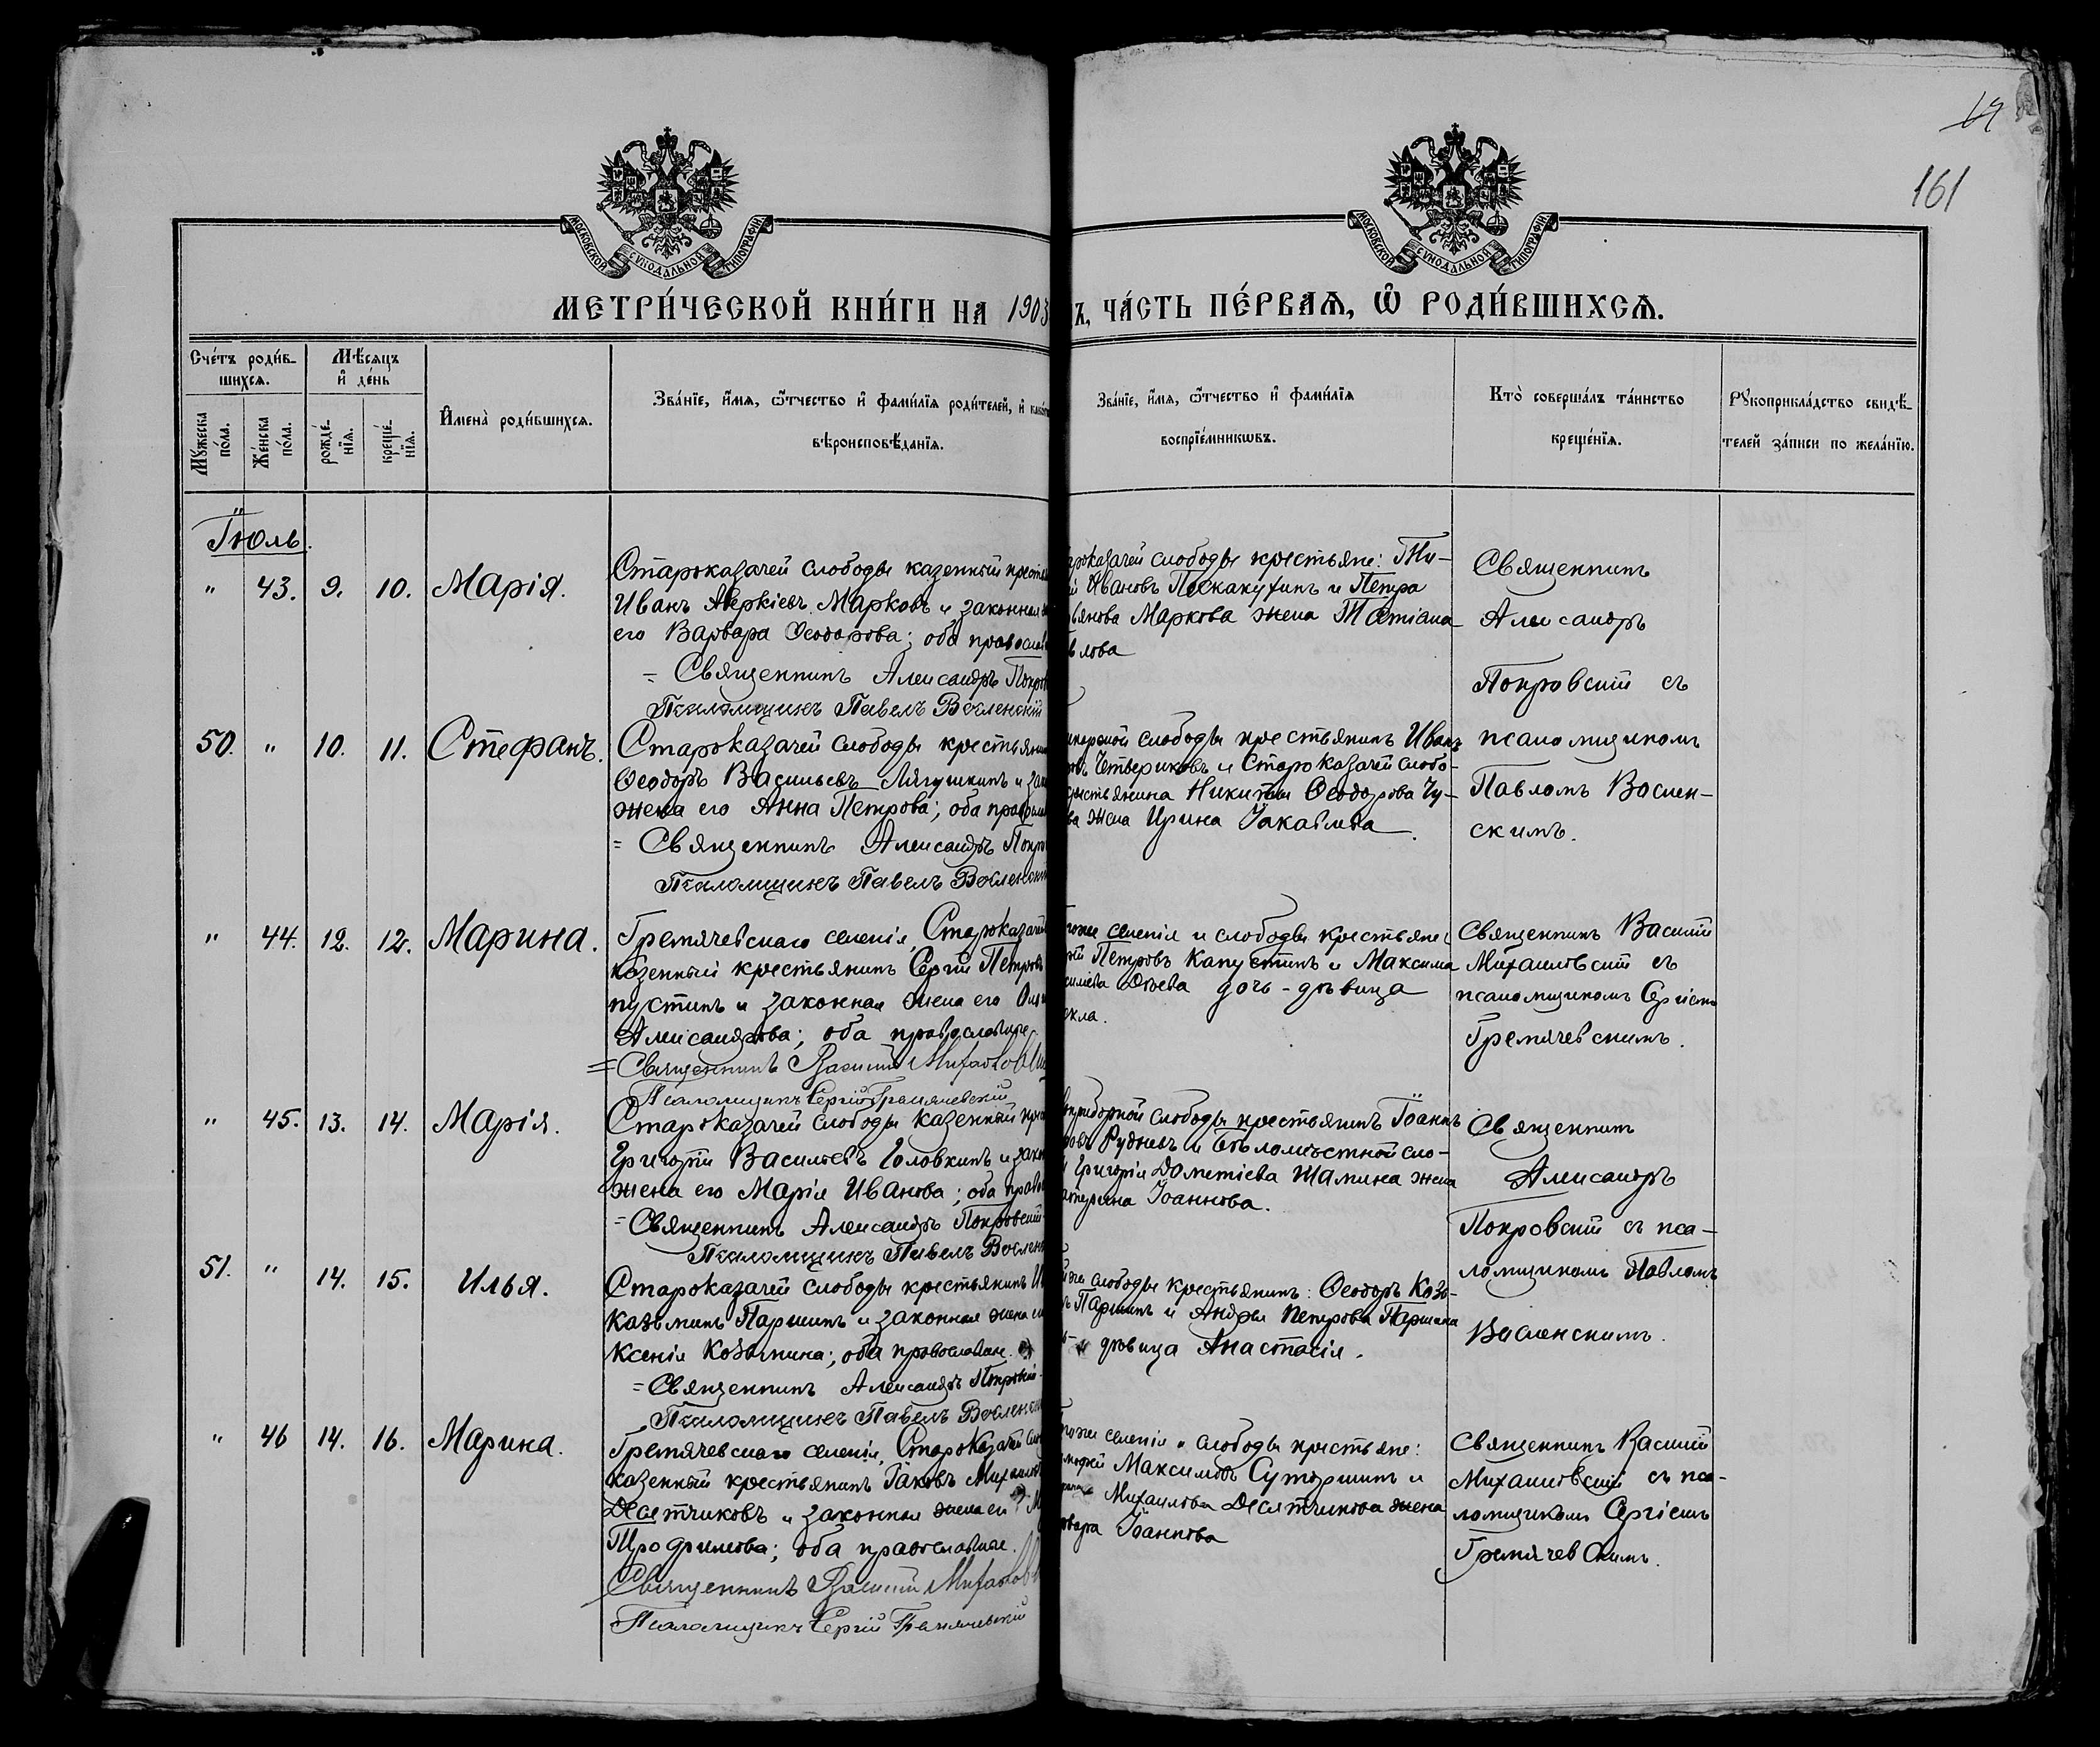 19
161
МОСКОВСКОЙ СѴНОДАЛЬНОЙ ТИПОГРАФІИ
МОСКОВСКОЙ СѴНОДАЛЬНОЙ ТИПОГРАФІИ
МЕТРИ́ЧЕСКОЙ КНИ́ГИ НА 1903
Ъ, ЧА́СТЬ ПЕ́РВАѦ, Ѡ҆ РОДИ́ВШИХСѦ.
Сче́тъ роди́в-
шихсѧ.
Мѣ́сѧцъ
и҆ де́нь
Мꙋ́жеска
по́ла.
Же́нска
по́ла.
рожде́-
нїѧ.
креще́-
нїѧ.
И҆мена̀ роди́вшихсѧ.
Зва́нїе, и҆́мѧ, ѻ҆́тчество и҆ фами́лїѧ роди́телей, и҆
вѣроисповѣ́данїѧ.
Зва́нїе, и҆́мѧ, ѻ҆́тчество и҆ фами́лїѧ
воспрїе́мникѡвъ.
Кто̀ соверша́лъ та́инство
креще́нїѧ.
Рꙋкоприкла́дство свидѣ́-
телей за́писи по жела́нїю.
Іюль.
" 43. 9. 10. Марія.
Староказачей слободы казенный
Иванъ Аверкіевъ Марковъ и законная
его Варвара Ѳеодорова; оба
= Священникъ Александръ
Псаломщикъ Павелъ Восленскій
слободы крестьяне: Ти-
Ивановъ Поскакухинъ и Петра
Маркова жена Татіана
Священникъ
Александръ
Покровскій съ
псаломщикомъ
Павломъ Вослен-
скимъ.
50. " 10. 11. Стефанъ.
Староказачей слободы
Ѳеодоръ Васильевъ Лягушкинъ и
жена его Анна Петрова; оба
= Священникъ Александръ
Псаломщикъ Павелъ
слободы крестьянинъ Иванъ
Четвериковъ и Староказачей слобо-
Никиты Ѳеодорова Чу-
жена Ирина Іаковлева.
" 44. 12. 12. Марина.
Гремячевскаго селенія, Староказачей
казенный крестьянинъ Сергій Петровъ
пустинъ и законная жена его
Александрова; оба православные.
= Священникъ Василій
Псаломщикъ Сергій Гремячевскій
селенія и слободы крестьяне:
Петровъ Капустинъ и Максима
дочь-дѣвица
Священникъ Василій
Михайловскій съ
псаломщикомъ Сергіемъ
Гремячевскимъ.
" 45. 13. 14. Марія.
Староказачей слободы казенный
Григорій Васильевъ Головкинъ и
жена его Марія Иванова; оба
= Священникъ Александръ Покровскій
Псаломщикъ Павелъ
слободы крестьянинъ Іоаннъ
Рудневъ и Бѣломѣстной сло-
Григорія Дометіева Шамина жена
Іоаннова.
Священникъ
Александръ
Покровскій съ пса-
ломщикомъ Павломъ
Восленскимъ.
51. " 14. 15. Илья.
Староказачей слободы крестьянинъ
Казьминъ Паршинъ и законная жена
Ксенія Козьмина; оба православн.
= Священникъ Александръ Покровскій
Псаломщикъ Павелъ
слободы крестьянинъ: Ѳеодоръ Козь-
Паршинъ и Андрея Петрова Паршина
дѣвица Анастасія.
" 46 14. 16. Марина.
Гремячевскаго селенія, Староказачей
казенный крестьянинъ Іаковъ
Десятчиковъ и законная жена его
Трофимова; оба православные.
Священникъ Василій
Псаломщикъ Сергій Гремячевскій
селенія и слободы крестьяне:
Максимовъ Суторшинъ и
Михаилова Десятчикова жена
Іоаннова
Священникъ Василій
Михайловскій съ пса-
ломщикомъ Сергіемъ
Гремячевскимъ.